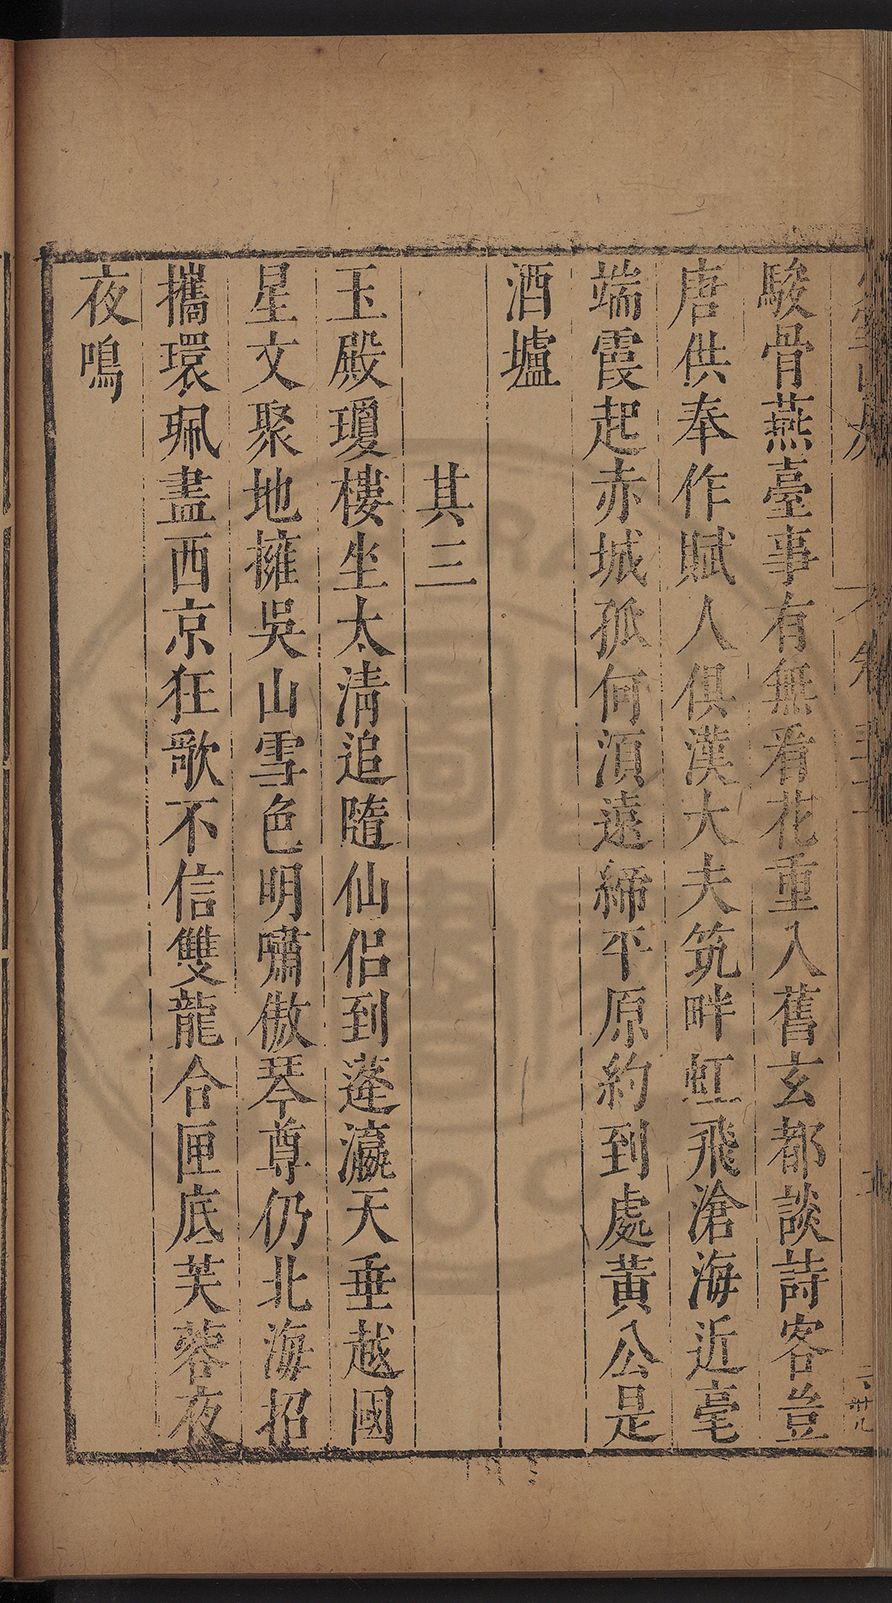 駿骨燕臺事有無看花重入舊玄都談詩客豈
唐供奉作賦人俱漢大夫筑畔虹飛滄海近毫
端霞起赤城孤何須遠締平原約到處黃公是
酒壚
其三
玉殿瓊樓坐太清追隨仙侶到蓬瀛天垂越國
星文聚地擁吳山雪色明嘯傲琴尊仍北海招
攜環珮盡西京狂歌不信雙龍合匣底芙蓉夜
夜鳴